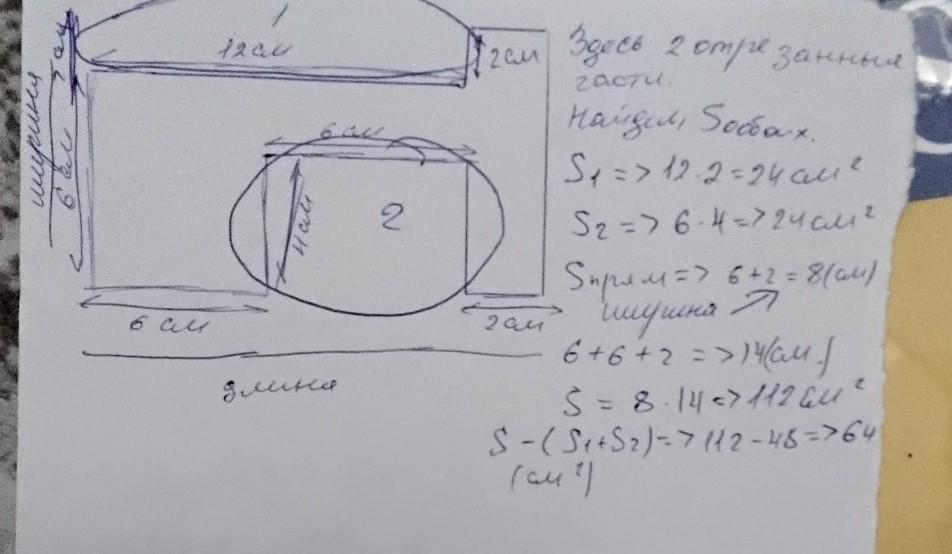 1
12см
2см
ширина
6см
6см
4см
2
6см
2см
длина
Здесь 2 отрезанные
части.
Найдем, S обоих.
S1 => 12·2=24см²
S2 => 6·4=>24см²
Sпрям => 6+2=8(см)
ширина
6+6+2 =>14(см.)
S = 8·14=>112см²
S-(S1+S2)=>112-48=>64
(см²)